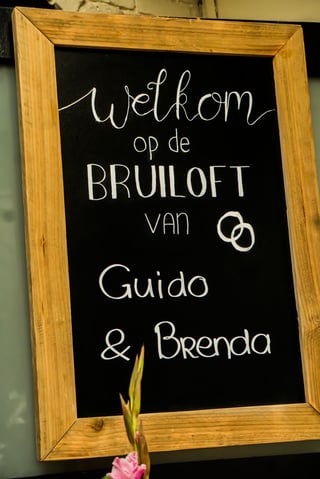 welkom
op de
BRUILOFT
VAN
Guido
& Brenda